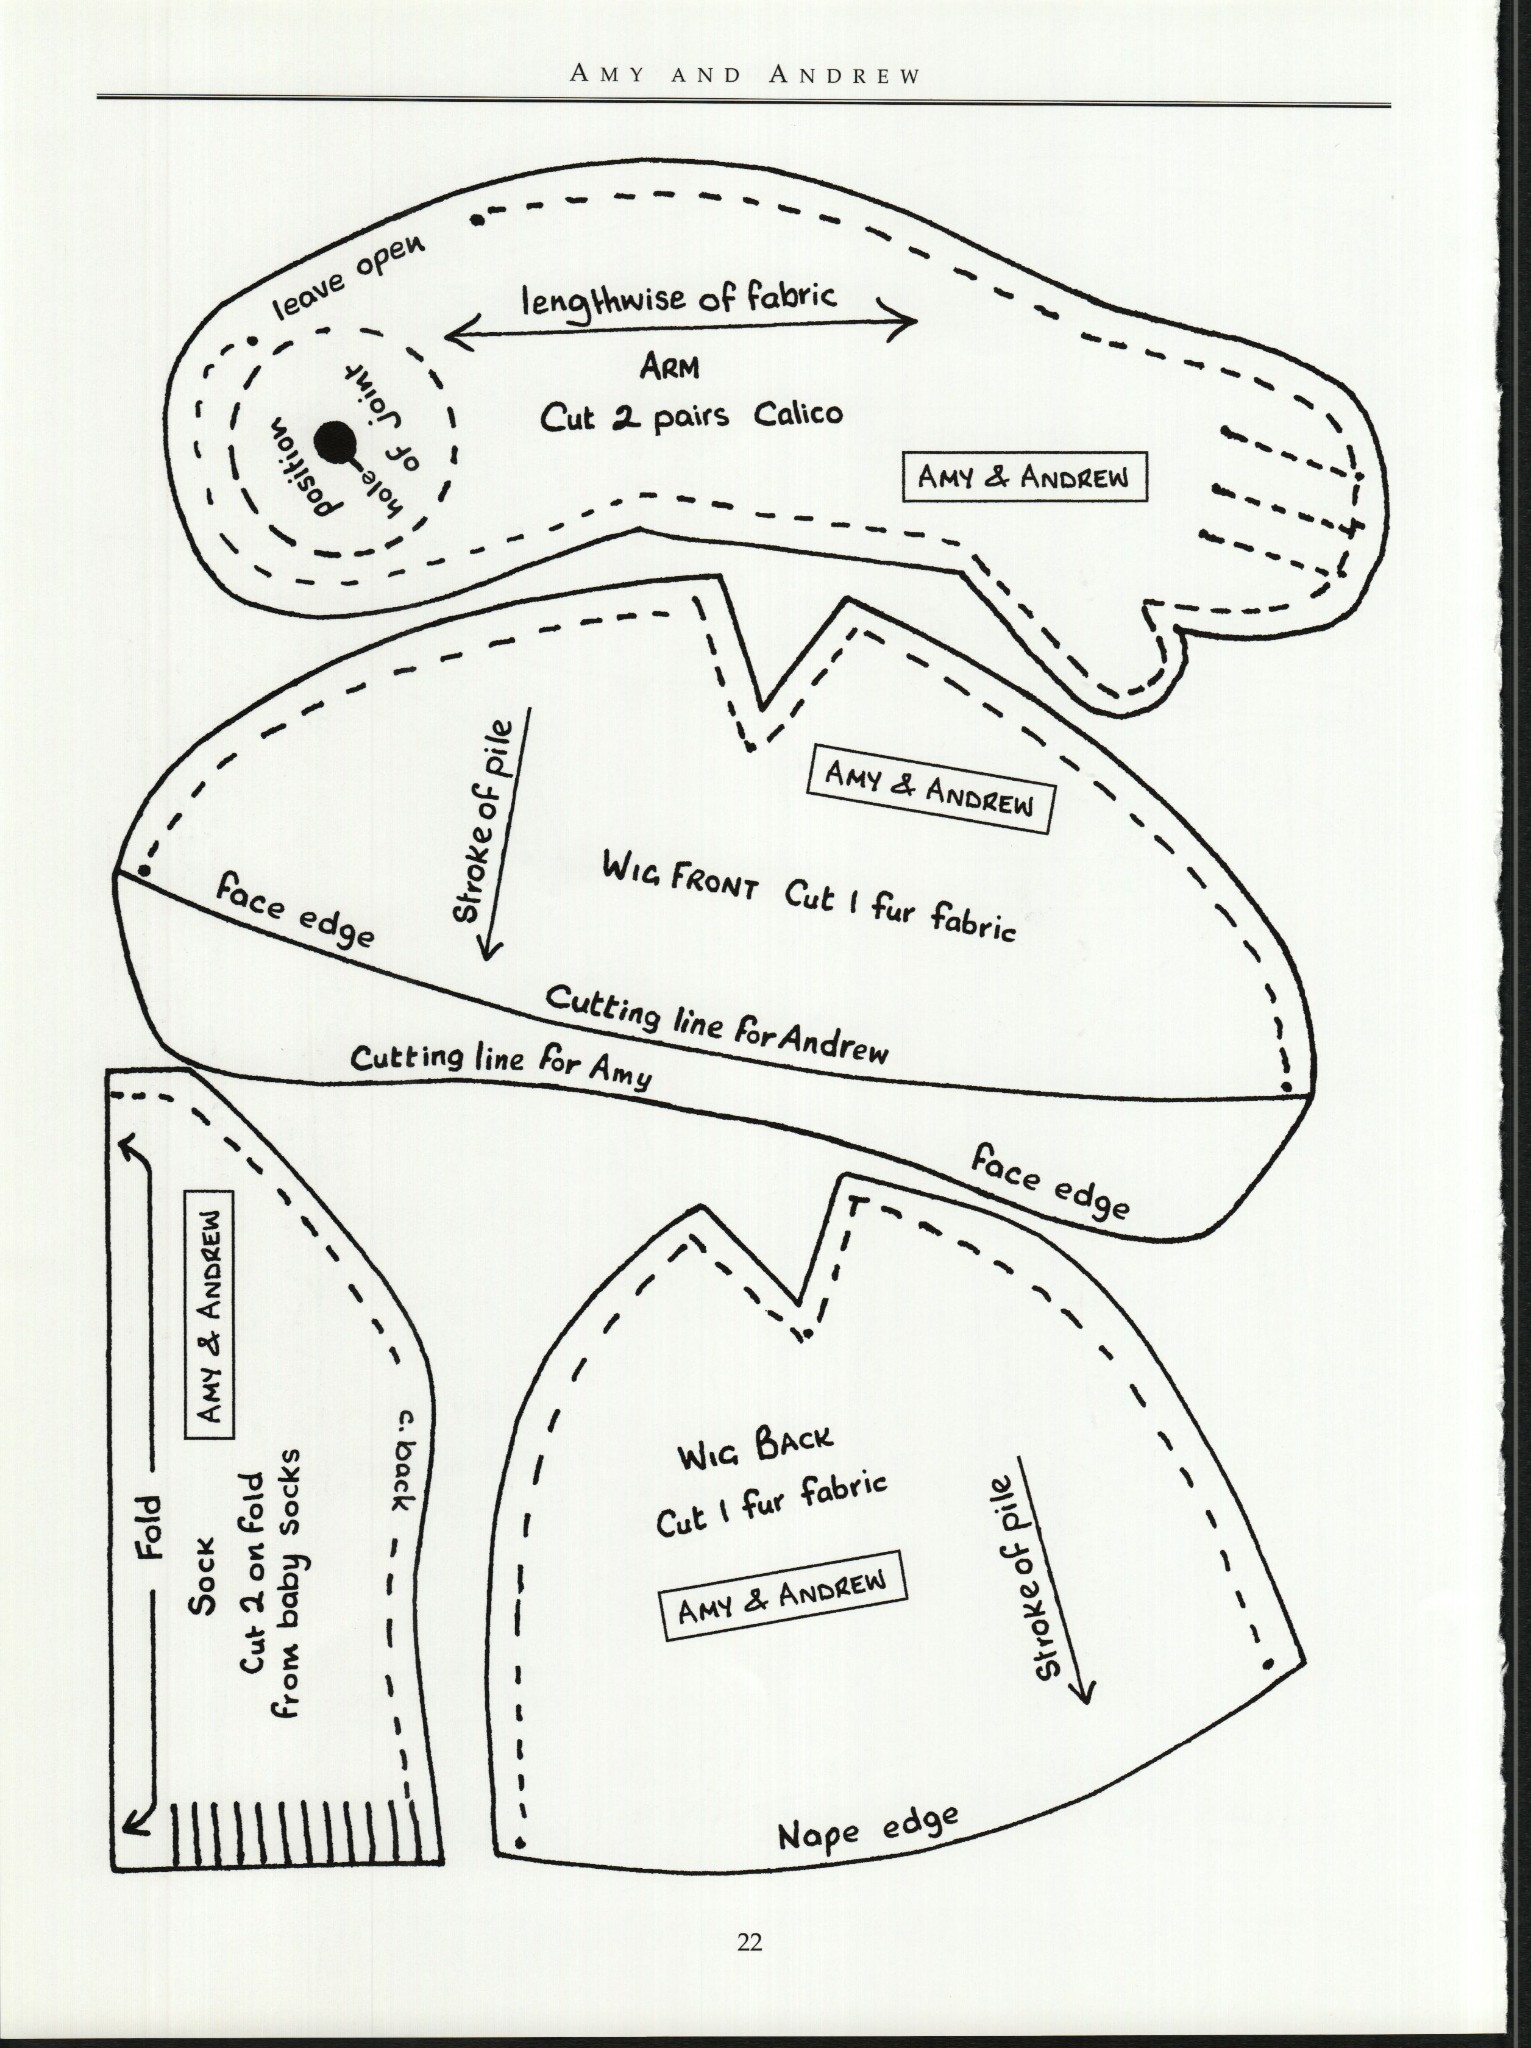 AMY AND ANDREW
leave open
lengthwise of fabric
ARM
Cut 2 pairs Calico
position
of Joint
hole
AMY & ANDREW
Stroke of pile
AMY & ANDREW
WIG FRONT Cut 1 fur fabric
face edge
Cutting line for Andrew
Cutting line for Amy
face edge
Fold
AMY & ANDREW
SOCK
Cut 2 on fold
from baby socks
c. back
WIG BACK
Cut 1 fur fabric
AMY & ANDREW
Stroke of pile
Nape edge
22